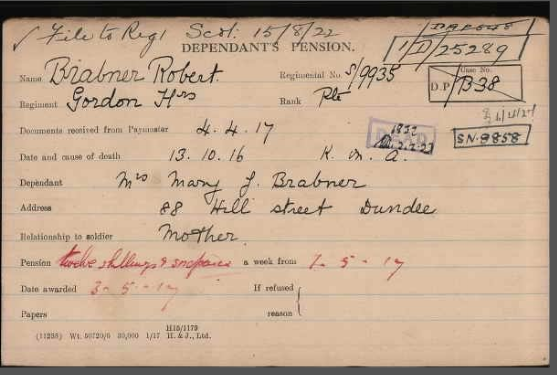 ✓ File to Regl Scot: 15/8/22
DEPENDANT'S PENSION.
1/D/25289
Name Brabner Robert. Regimental No. S/9935
Regiment Gordon Hrs Rank Pte
Case No.
D.P/B38
Documents received from Paymaster 4.4.17
DEAD
SN.9858
Date and cause of death 13.10.16 K. in. A.
Dependant Mrs Mary J. Brabner
Address 88 Hill street Dundee
Relationship to soldier Mother.
Pension twelve shillings & sixpence a week from 7-5-17
Date awarded 3-5-17 If refused
Papers reason
(11238) Wt. 50720/6 30,000 1/17 H15/1179 H. & J., Ltd.